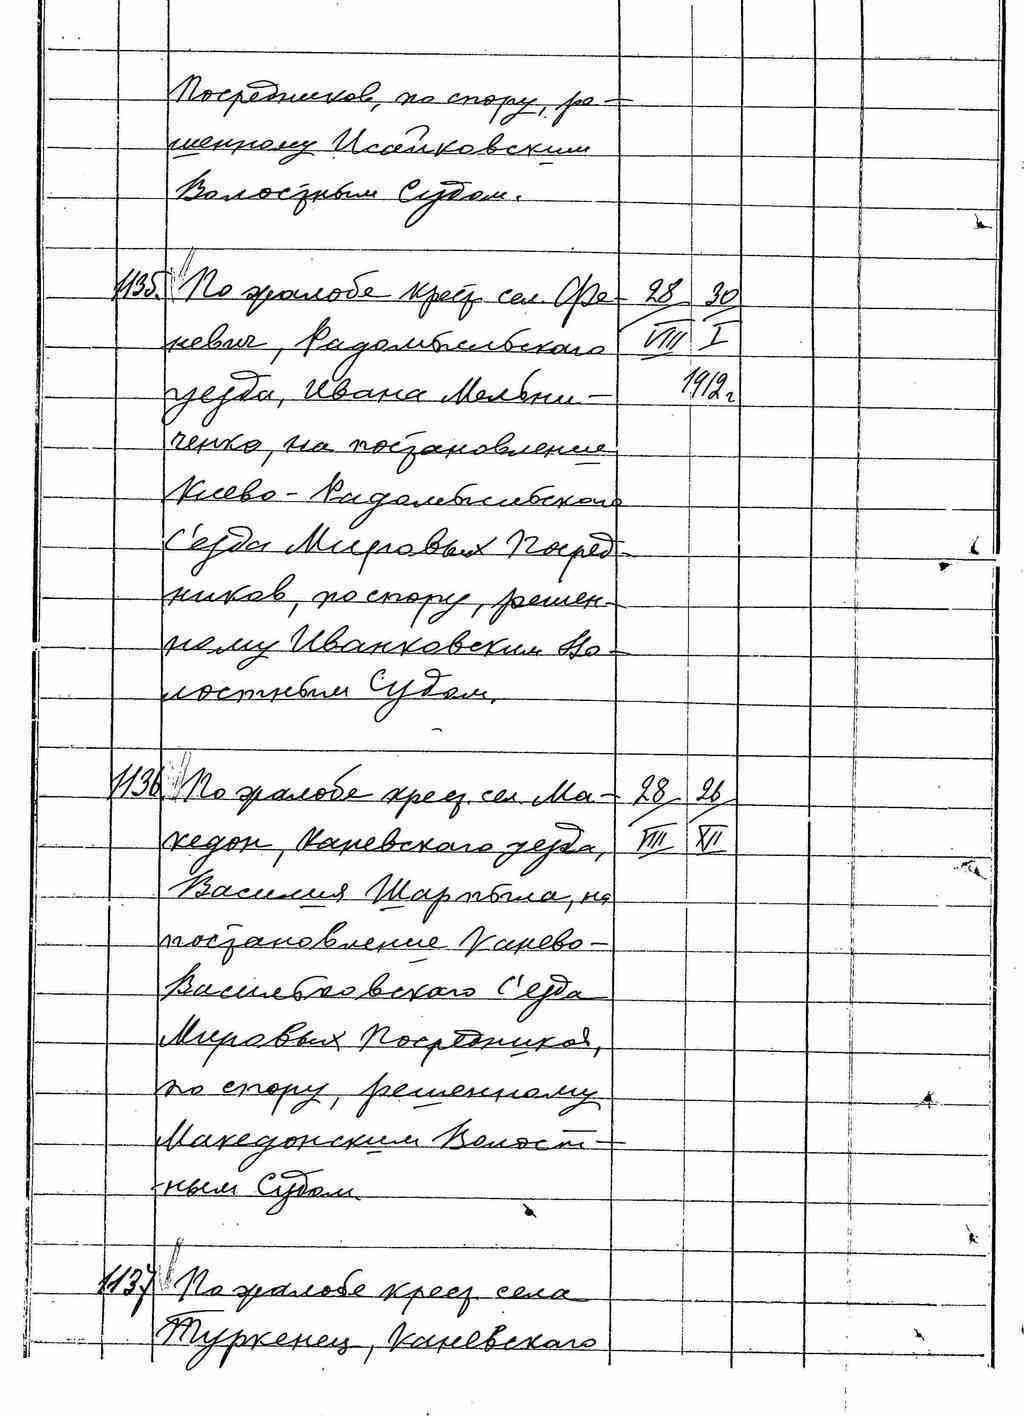 Посредников, по спору, ре-
шенному Исайковским
Волостным Судом.
1135. По жалобе крест. сел. Фе- 28 30
невич, Радомысльского VIII I
уезда, Ивана Мельни- 1912 г
ченко, на постановление
Киево-Радомысльского
С'езда Мировых Посред-
ников, по спору, решен-
ному Иванковским Во-
лостным Судом.
1136. По жалобе крест. сел. Ма- 28 26
кедон, Каневского уезда, VIII XII
Василия Шарпыла, на
постановление Канево-
Васильковского С'езда
Мировых Посредников,
по спору, решенному
Македонским Волост-
ным Судом.
1137 По жалобе крест. села
Туркенец, Каневского